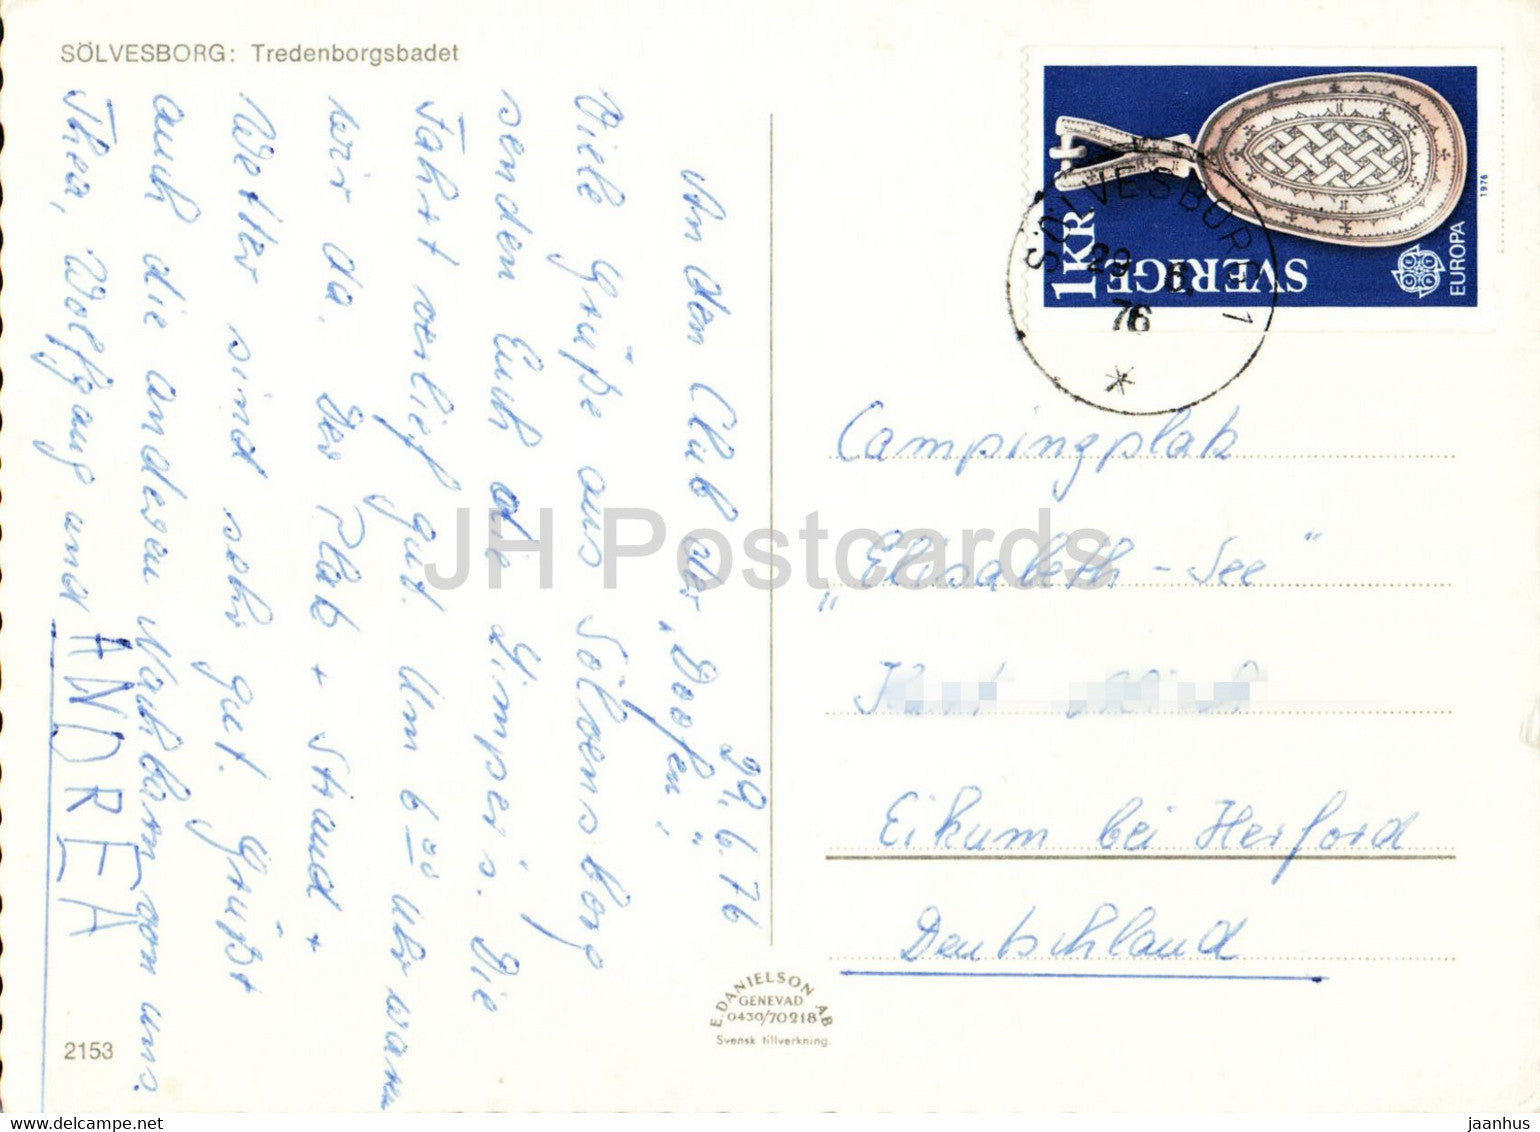 SÖLVESBORG: Tredenborgsbadet
29.6.76
An den Club der „Doofen"!
Viele Grüße aus Sölvesborg
senden Euch die Gimper's. Die
Fahrt verlief gut. Um 6⁰⁰ Uhr waren
wir da. Der Platz + Strand +
Wetter sind sehr gut. Grüßt
auch die anderen Nachbarn von uns.
Thea, Wolfgang und ANDREA
2153
E. DANIELSON AB
GENEVAD
0430/70218
Svensk tillverkning.
1KR
SVERIGE
EUROPA
1976
SÖLVESBORG 1
29. 6.
76
Campingplatz
„Elisabeth-See"
Eikum bei Herford
Deutschland
JH Postcards
www.delcampe.net
jaanhus